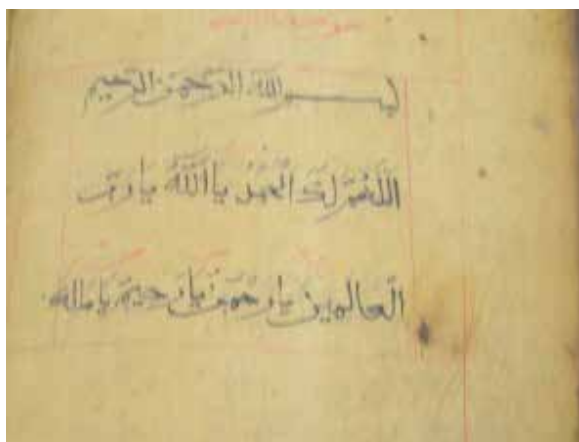 بسم الله الرحمن الرحيم
اللهم لك الحمد يا الله يا رب
العالمين يا رحمن يا رحيم يا مالك